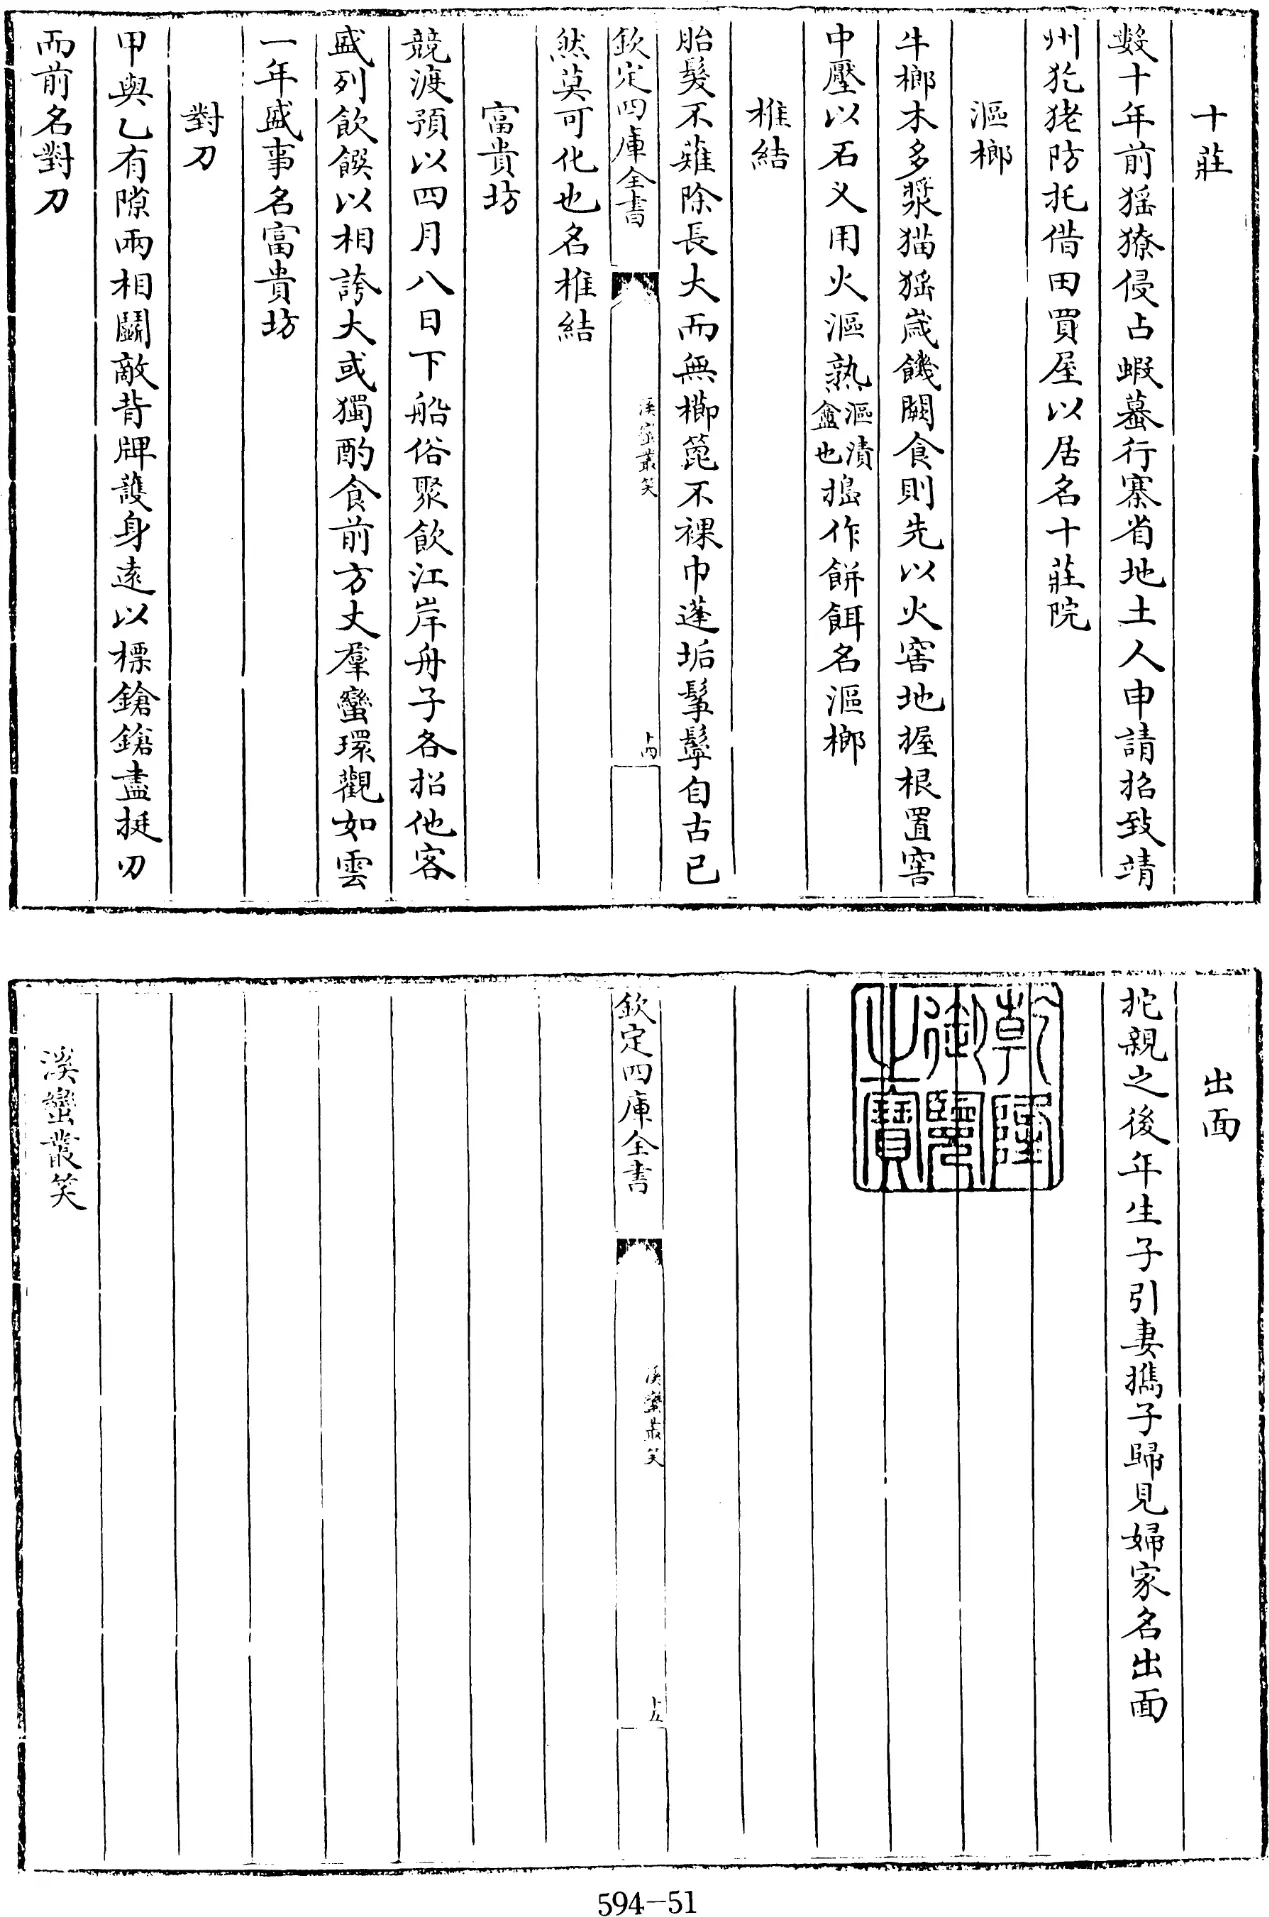 十莊
數十年前猺獠侵占蝦蟇行寨省地土人申請招致靖
州犵狫防托借田買屋以居名十莊院
漚榔
牛榔木多漿猫猺歳饑闕食則先以火窖地掘根置窖
中壓以石又用火漚熟漚漬盦也搗作餅餌名漚榔
椎結
胎髮不薙除長大而無櫛篦不裸巾蓬垢鬇鬡自古已
欽定四庫全書
溪蠻叢笑
十四
然莫可化也名椎結
富貴坊
競渡預以四月八日下船俗聚飲江岸舟子各招他客
盛列飲饌以相誇大或獨酌食前方丈羣蠻環觀如雲
一年盛事名富貴坊
對刀
甲與乙有隙兩相鬭敵背牌護身遠以標鎗鎗盡挺刃
而前名對刀
出面
拕親之後年生子引妻攜子歸見婦家名出面
乾隆御覽之寶
欽定四庫全書
溪蠻叢笑
十五
溪蠻叢笑
594-51